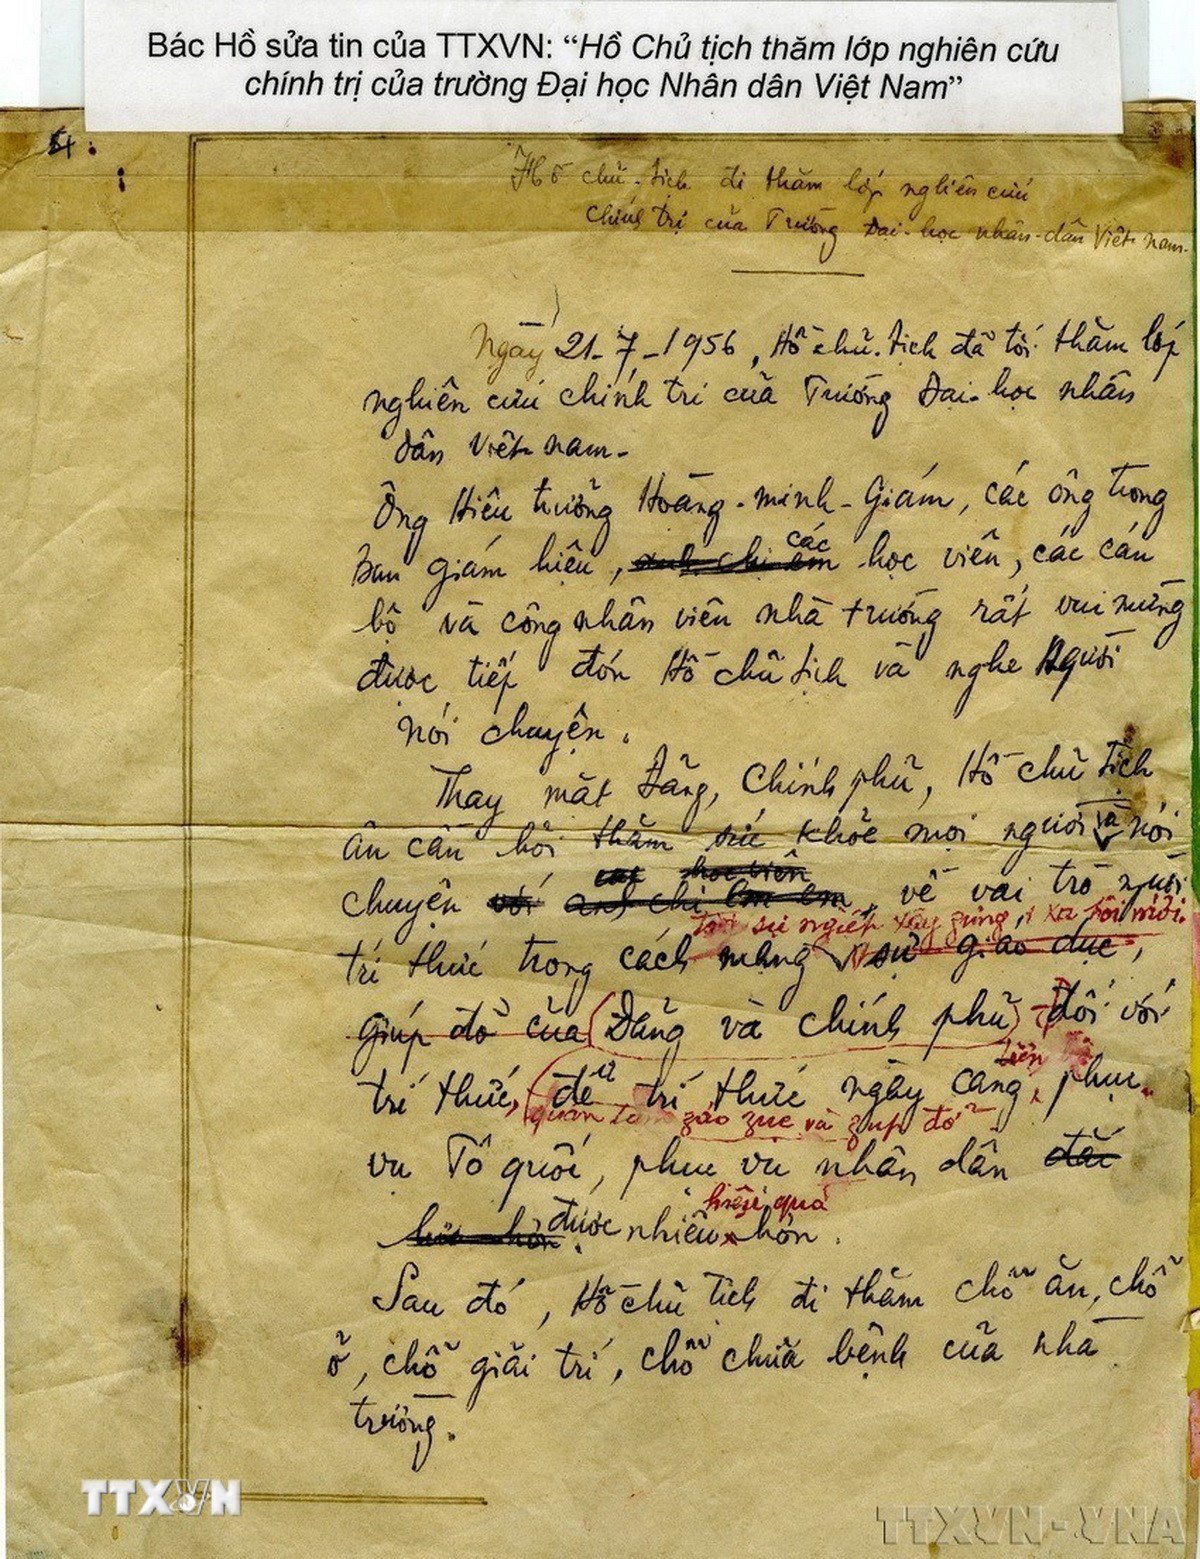 Bác Hồ sửa tin của TTXVN: “Hồ Chủ tịch thăm lớp nghiên cứu
chính trị của trường Đại học Nhân dân Việt Nam”
Hồ chủ-tịch đi thăm lớp nghiên cứu
chính trị của Trường Đại-học nhân-dân Việt-nam-
Ngày 21-7-1956, Hồ chủ-tịch đã tới thăm lớp
nghiên cứu chính trị của Trường Đại-học nhân
dân Việt-nam-
Ông Hiệu trưởng Hoàng-minh-Giám, các ông trong
các
ban giám hiệu, anh chị em học viên, các cán
bộ và công nhân viên nhà trường rất vui mừng
được tiếp đón Hồ chủ tịch và nghe Người
nói chuyện.
Thay mặt Đảng, Chính phủ, Hồ chủ tịch
và
ân cần hỏi thăm sức khỏe mọi người nói
các học viên
chuyện với anh chị em, về vai trò người
sự nghiệp xây zựng xã hội mới.
trí thức trong cách mạng sự giáo dục,
giúp đỡ của Đảng và chính phủ đối với
tiến bộ
trí thức, để trí thức ngày càng, phục
quan tâm záo zục và zúp đỡ
vụ Tổ quốc, phục vụ nhân dân đắc
hiệu quả
được nhiều hơn.
Sau đó, Hồ chủ tịch đi thăm chỗ ăn, chỗ
ở, chỗ giải trí, chỗ chữa bệnh của nhà
trường.
TTXVN
TTXVN-VNA